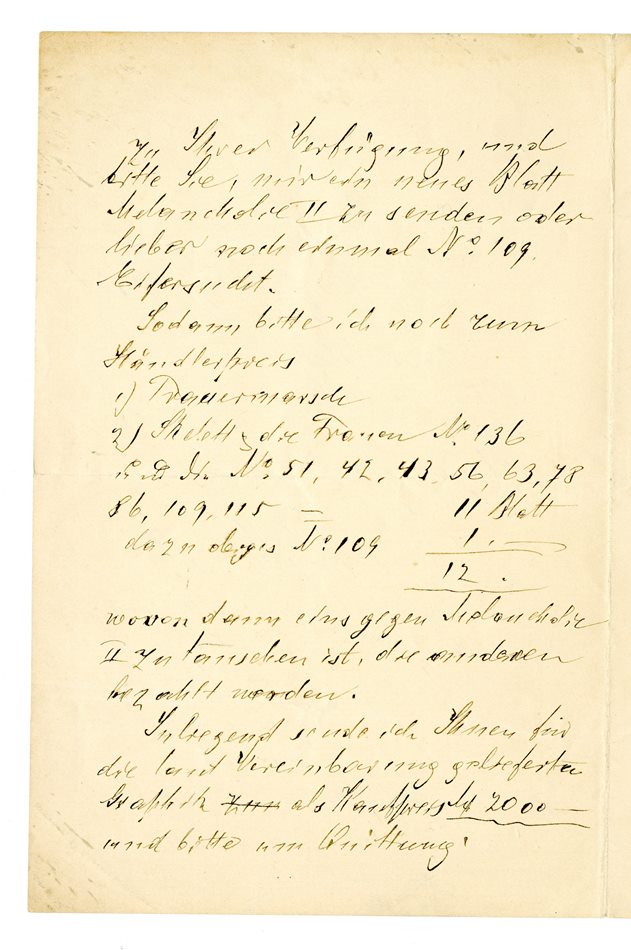 zu Ihrer Verfügung, und
bitte Sie, mir ein neues Blatt
Melancholie II zu senden oder
lieber noch einmal No. 109.
Eifersucht.
Sodann bitte ich noch zum
Händlerpreis
1) Trauermarsch
2) Skelett & die Frauen No. 136
und die No. 51, 42, 43, 56, 63, 78
86, 109, 115 — 11 Blatt
dazu obiges No. 109 1. —
12.
wovon dann eins gegen Melancholie
II zu tauschen ist, die anderen
bezahlt werden.
Inliegend sende ich Ihnen für
die laut Vereinbarung gelieferte
Graphik zum als Kaufpreis M 2000 —
und bitte um Quittung.